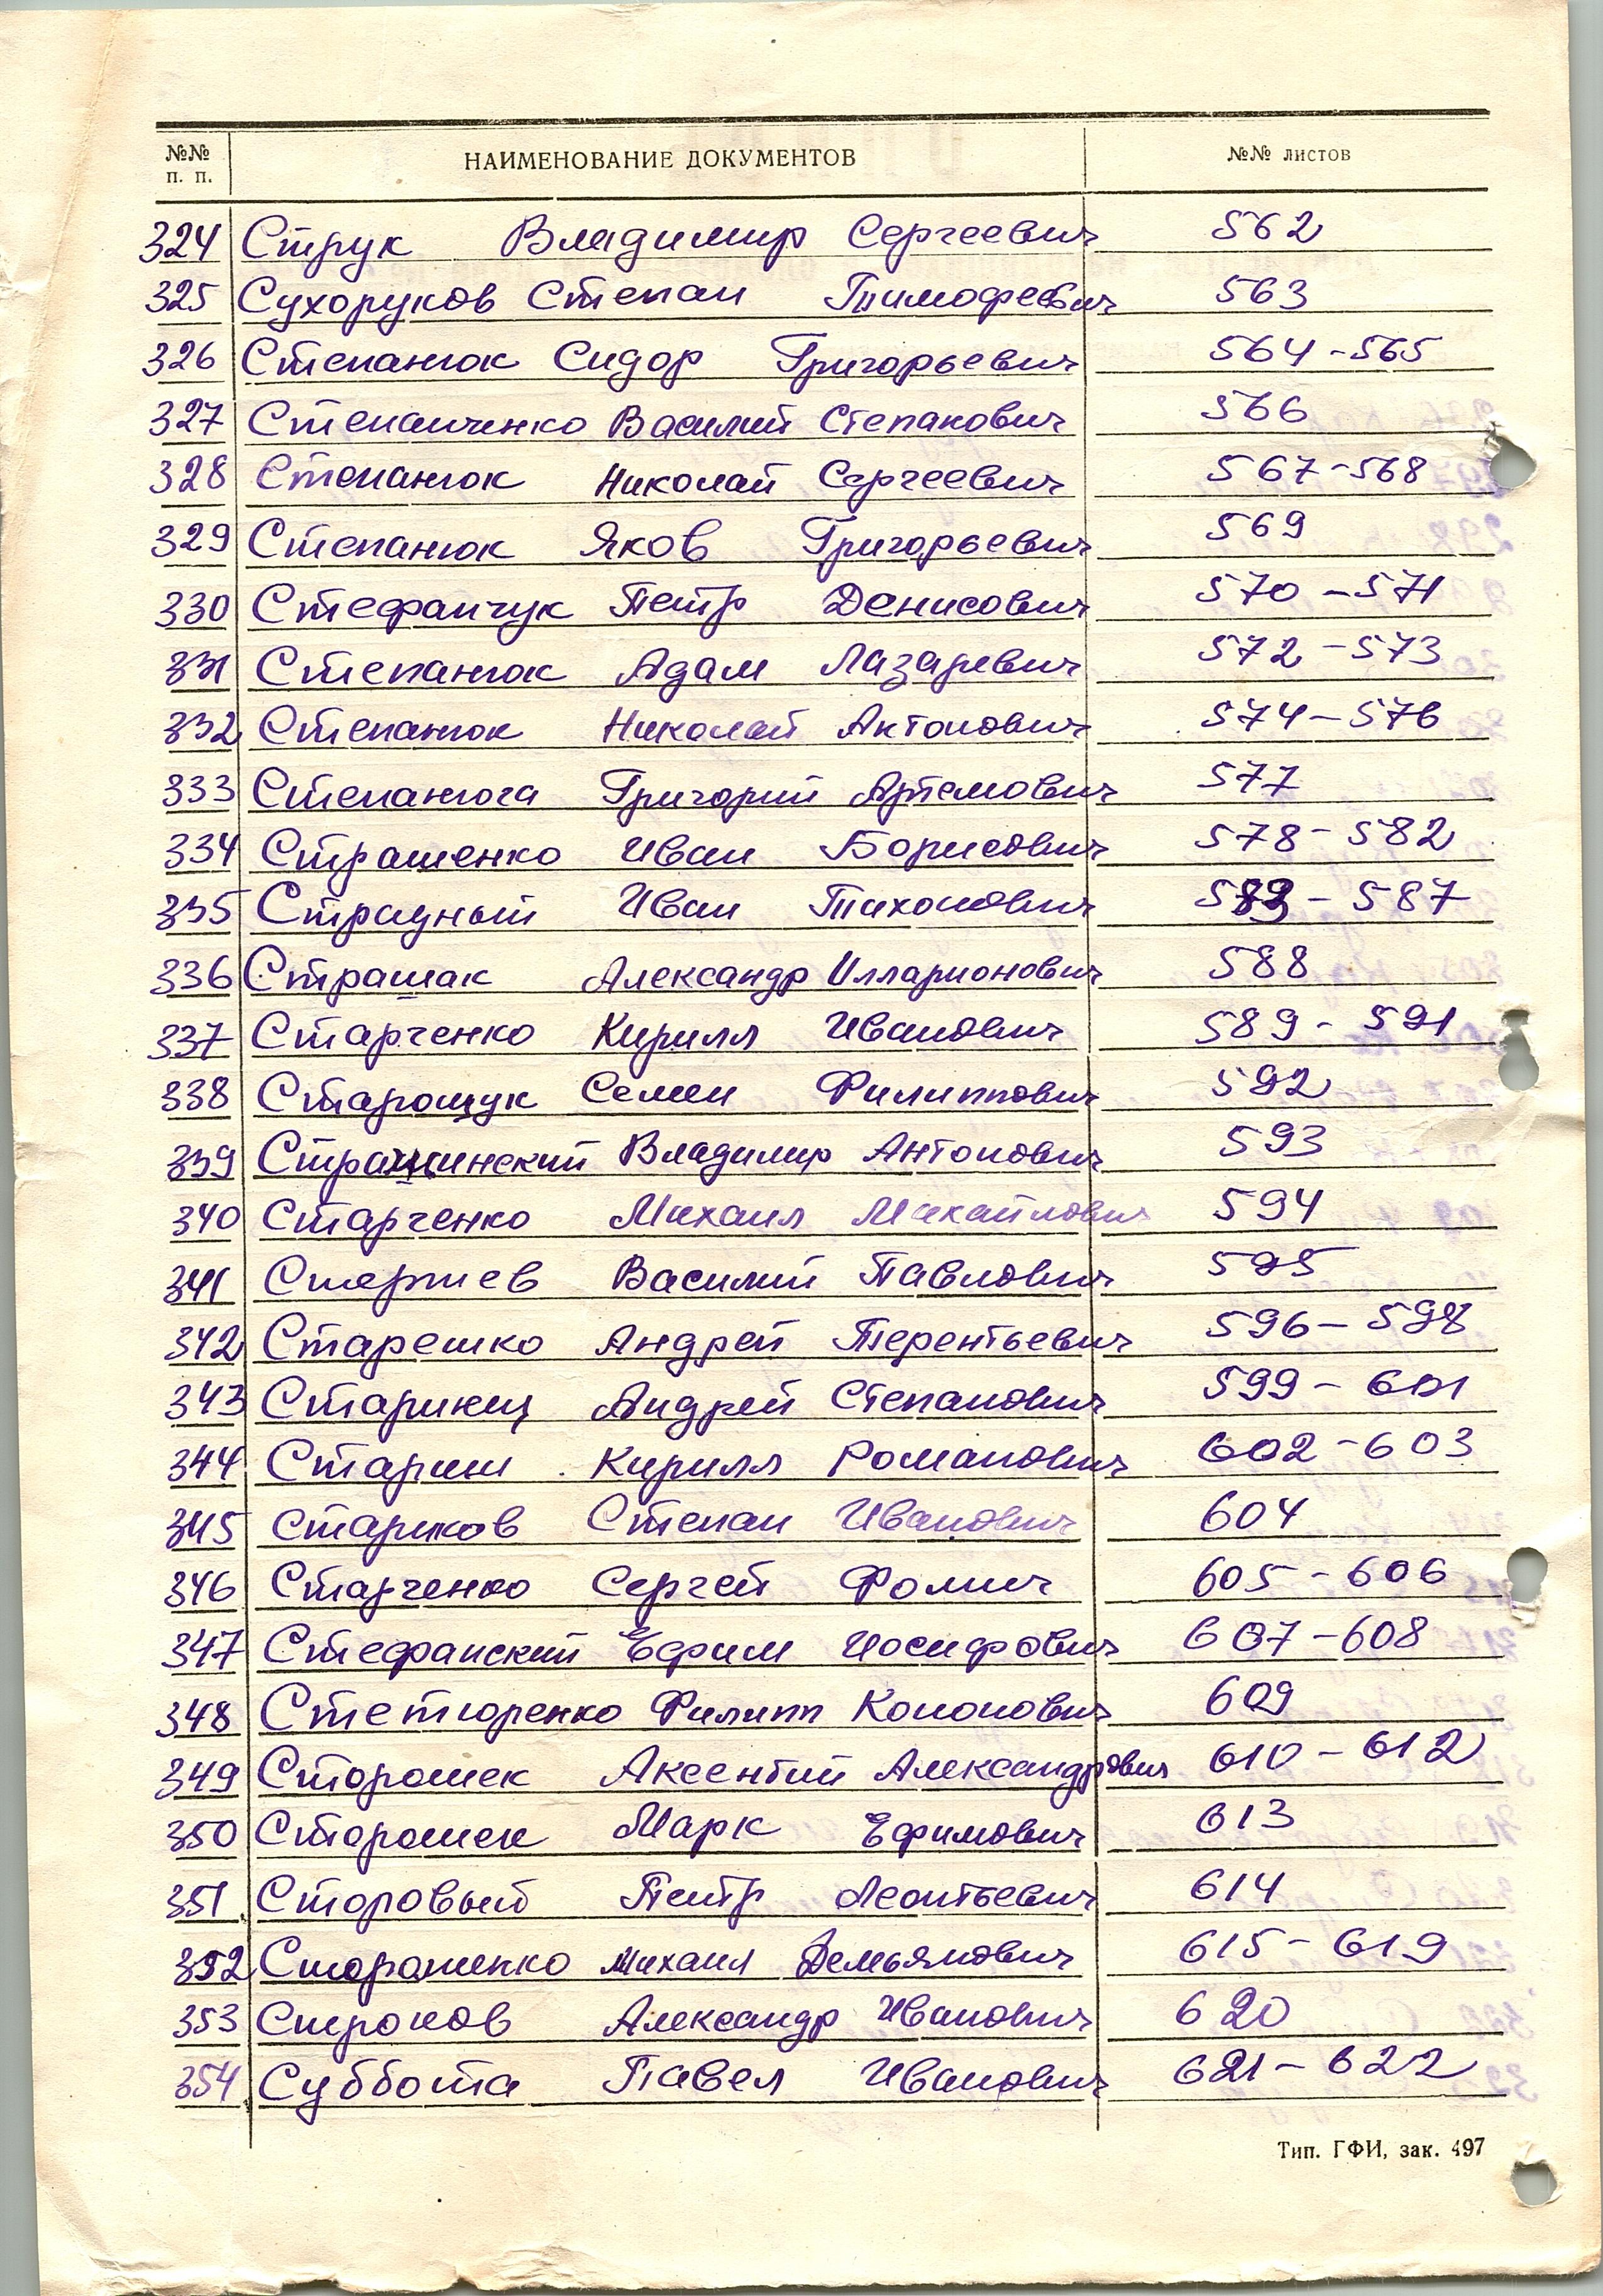 №№ п. п. НАИМЕНОВАНИЕ ДОКУМЕНТОВ №№ листов
324 Струк Владимир Сергеевич 562
325 Сухоруков Степан Тимофеевич 563
326 Степанюк Сидор Григорьевич 564-565
327 Степанченко Василий Степанович 566
328 Степанюк Николай Сергеевич 567-568
329 Степанюк Яков Григорьевич 569
330 Стефанчук Петр Денисович 570-571
331 Степанюк Адам Лазаревич 572-573
332 Степанюк Николай Антонович 574-576
333 Степанюга Григорий Артемович 577
334 Страшенко Иван Борисович 578-582
335 Иван Тихонович 583-587
336 Страшак Александр Илларионович 588
337 Старченко Кирилл Иванович 589-591
338 Старощук Семен Филиппович 592
339 Стращинский Владимир Антонович 593
340 Старченко Михаил Михайлович 594
341 Василий Павлович 595
342 Старешко Андрей Терентьевич 596-598
343 Андрей Степанович 599-601
344 Стариш Кирилл Романович 602-603
345 Стариков Степан Иванович 604
346 Старченко Сергей Фомич 605-606
347 Стефанский Ефим Иосифович 607-608
348 Стетюренко Филипп Кононович 609
349 Сторошек Аксентий Александрович 610-612
350 Сторошек Марк Ефимович 613
351 Сторовый Петр Леонтьевич 614
352 Михаил Демьянович 615-619
353 Строков Александр Иванович 620
354 Суббота Павел Иванович 621-622
Тип. ГФИ, зак. 497